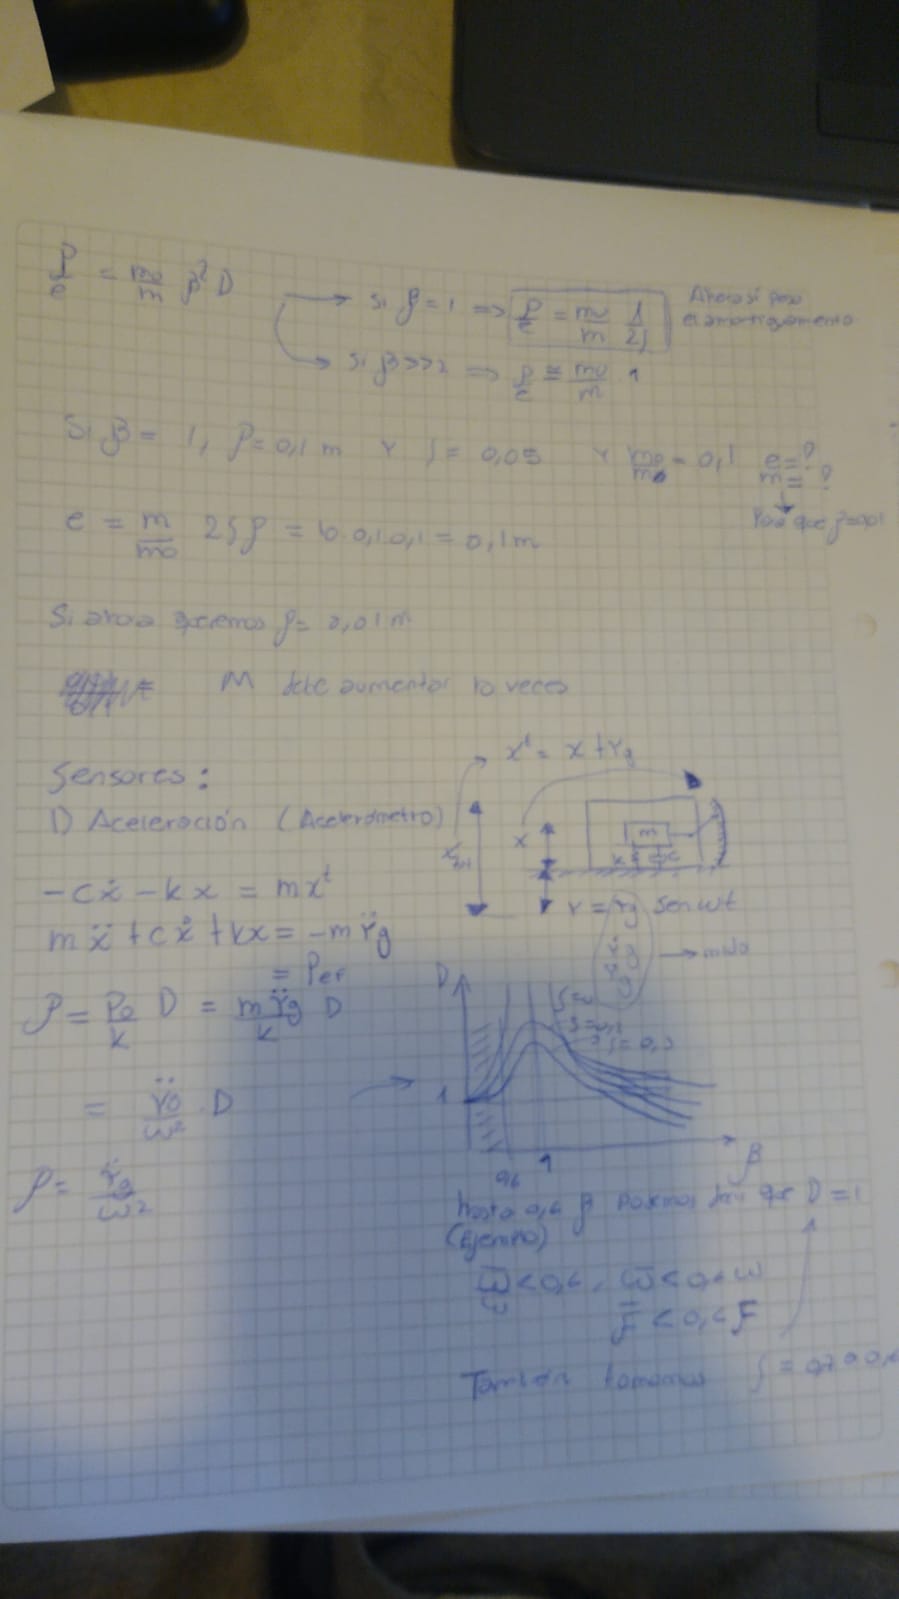 ρ/e = m₀/m β² D
Si β = 1 => ρ/e = m₀/m 1/2ξ
Ahora si pesa el amortiguamiento
Si β>>2 => ρ/e ≅ m₀/m · 1
Si β = 1, ρ = 0,1 m Y ξ = 0,05 Y m₀/m = 0,1 e = ? m = ?
Para que ρ=0,01
e = m/m₀ 2ξρ = 10·0,1·0,1 = 0,1m
Si ahora queremos ρ = 0,01 m
M debe aumentar 10 veces
Sensores:
xᵗ = x + Yg
1) Aceleración (Acelerómetro)
x
m
-cẋ - kx = mxᵗ
Y = Yg Sen wt
mẍ + cẋ + kx = -mŸg
= Pef
D
ρ = P₀/k D = mŸg/k D
1
= Ÿg/ω² · D
0,6 1 β
ρ = Ÿg/ω²
hasta 0,6 β podemos decir que D = 1
(Ejemplo)
ω̄/ω < 0,6, ω̄ < 0,6 ω
f̄ < 0,6 f
También tomamos